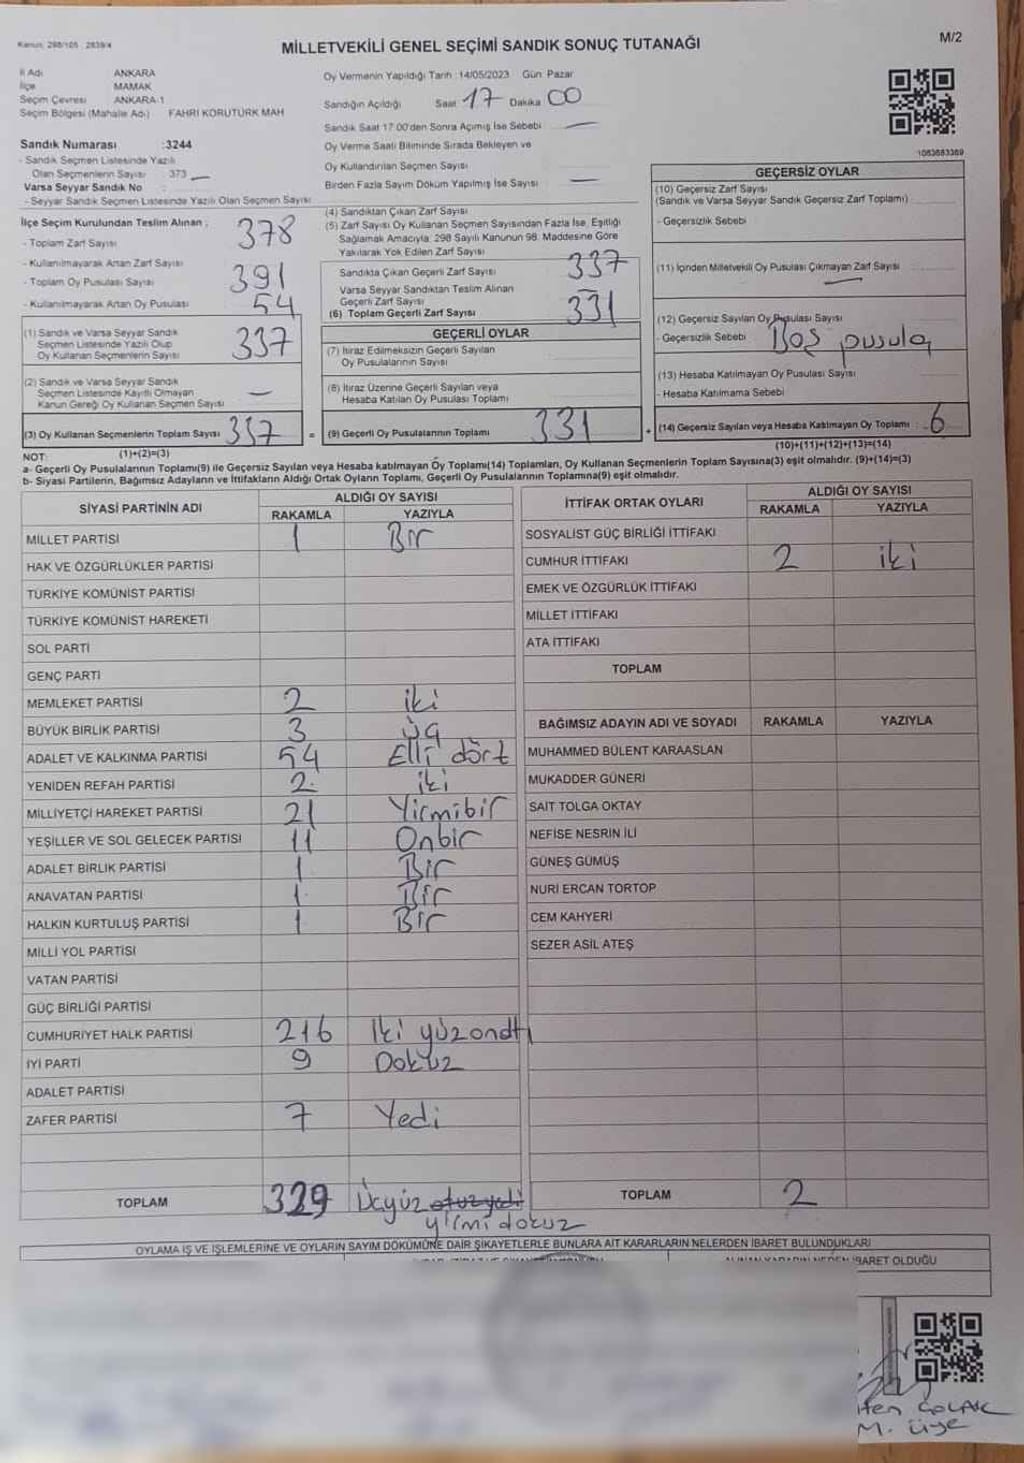 Kanun: 298/105 : 2839/4
MİLLETVEKİLİ GENEL SEÇİMİ SANDIK SONUÇ TUTANAĞI
M/2
İl Adı ANKARA
İlçe MAMAK
Seçim Çevresi ANKARA-1
Seçim Bölgesi (Mahalle Adı) FAHRİ KORUTÜRK MAH
Oy Vermenin Yapıldığı Tarih : 14/05/2023 Gün: Pazar
Sandığın Açıldığı Saat 17 Dakika 00
Sandık Saat 17:00'den Sonra Açılmış İse Sebebi
Oy Verme Saati Bitiminde Sırada Bekleyen ve
Oy Kullandırılan Seçmen Sayısı
Birden Fazla Sayım Döküm Yapılmış İse Sayısı
Sandık Numarası :3244
- Sandık Seçmen Listesinde Yazılı
Olan Seçmenlerin Sayısı 373
Varsa Seyyar Sandık No
- Seyyar Sandık Seçmen Listesinde Yazılı Olan Seçmen Sayısı
İlçe Seçim Kurulundan Teslim Alınan ;
- Toplam Zarf Sayısı 378
- Kullanılmayarak Artan Zarf Sayısı
- Toplam Oy Pusulası Sayısı 391
- Kullanılmayarak Artan Oy Pusulası 54
(1) Sandık ve Varsa Seyyar Sandık
Seçmen Listesinde Yazılı Olup
Oy Kullanan Seçmenlerin Sayısı 337
(2) Sandık ve Varsa Seyyar Sandık
Seçmen Listesinde Kayıtlı Olmayan
Kanun Gereği Oy Kullanan Seçmen Sayısı
(3) Oy Kullanan Seçmenlerin Toplam Sayısı 337
(1)+(2)=(3)
(4) Sandıktan Çıkan Zarf Sayısı
(5) Zarf Sayısı Oy Kullanan Seçmen Sayısından Fazla İse, Eşitliği
Sağlamak Amacıyla; 298 Sayılı Kanunun 98. Maddesine Göre
Yakılarak Yok Edilen Zarf Sayısı
Sandıkta Çıkan Geçerli Zarf Sayısı 337
Varsa Seyyar Sandıktan Teslim Alınan
Geçerli Zarf Sayısı
(6) Toplam Geçerli Zarf Sayısı 331
GEÇERLİ OYLAR
(7) İtiraz Edilmeksizin Geçerli Sayılan
Oy Pusulalarının Sayısı
(8) İtiraz Üzerine Geçerli Sayılan veya
Hesaba Katılan Oy Pusulası Toplamı
= (9) Geçerli Oy Pusulalarının Toplamı 331
1063683369
GEÇERSİZ OYLAR
(10) Geçersiz Zarf Sayısı
(Sandık ve Varsa Seyyar Sandık Geçersiz Zarf Toplamı)
- Geçersizlik Sebebi
(11) İçinden Milletvekili Oy Pusulası Çıkmayan Zarf Sayısı
(12) Geçersiz Sayılan Oy Pusulası Sayısı
- Geçersizlik Sebebi Boş pusula
(13) Hesaba Katılmayan Oy Pusulası Sayısı
- Hesaba Katılmama Sebebi
+ (14) Geçersiz Sayılan veya Hesaba Katılmayan Oy Toplamı : 6
(10)+(11)+(12)+(13)=(14)
NOT:
a- Geçerli Oy Pusulalarının Toplamı(9) ile Geçersiz Sayılan veya Hesaba katılmayan Oy Toplamı(14) Toplamları, Oy Kullanan Seçmenlerin Toplam Sayısına(3) eşit olmalıdır. (9)+(14)=(3)
b- Siyasi Partilerin, Bağımsız Adayların ve İttifakların Aldığı Ortak Oyların Toplamı, Geçerli Oy Pusulalarının Toplamına(9) eşit olmalıdır.
SİYASİ PARTİNİN ADI ALDIĞI OY SAYISI
RAKAMLA YAZIYLA
MİLLET PARTİSİ 1 Bir
HAK VE ÖZGÜRLÜKLER PARTİSİ
TÜRKİYE KOMÜNİST PARTİSİ
TÜRKİYE KOMÜNİST HAREKETİ
SOL PARTİ
GENÇ PARTİ
MEMLEKET PARTİSİ 2 iki
BÜYÜK BİRLİK PARTİSİ 3 üç
ADALET VE KALKINMA PARTİSİ 54 Elli dört
YENİDEN REFAH PARTİSİ 2 iki
MİLLİYETÇİ HAREKET PARTİSİ 21 Yirmibir
YEŞİLLER VE SOL GELECEK PARTİSİ 11 Onbir
ADALET BİRLİK PARTİSİ 1 Bir
ANAVATAN PARTİSİ 1 Bir
HALKIN KURTULUŞ PARTİSİ 1 Bir
MİLLİ YOL PARTİSİ
VATAN PARTİSİ
GÜÇ BİRLİĞİ PARTİSİ
CUMHURİYET HALK PARTİSİ 216 İki yüzondtı
İYİ PARTİ 9 Dokuz
ADALET PARTİSİ
ZAFER PARTİSİ 7 Yedi
TOPLAM 329 Üçyüz otuzyedi
yirmidokuz
İTTİFAK ORTAK OYLARI ALDIĞI OY SAYISI
RAKAMLA YAZIYLA
SOSYALİST GÜÇ BİRLİĞİ İTTİFAKI
CUMHUR İTTİFAKI 2 iki
EMEK VE ÖZGÜRLÜK İTTİFAKI
MİLLET İTTİFAKI
ATA İTTİFAKI
TOPLAM
BAĞIMSIZ ADAYIN ADI VE SOYADI RAKAMLA YAZIYLA
MUHAMMED BÜLENT KARAASLAN
MUKADDER GÜNERİ
SAİT TOLGA OKTAY
NEFİSE NESRİN İLİ
GÜNEŞ GÜMÜŞ
NURİ ERCAN TORTOP
CEM KAHYERİ
SEZER ASİL ATEŞ
TOPLAM 2
OYLAMA İŞ VE İŞLEMLERİNE VE OYLARIN SAYIM DÖKÜMÜNE DAİR ŞİKAYETLERLE BUNLARA AİT KARARLARIN NELERDEN İBARET BULUNDUKLARI
İBARET OLDUĞU
ÇOLAK
M. üye